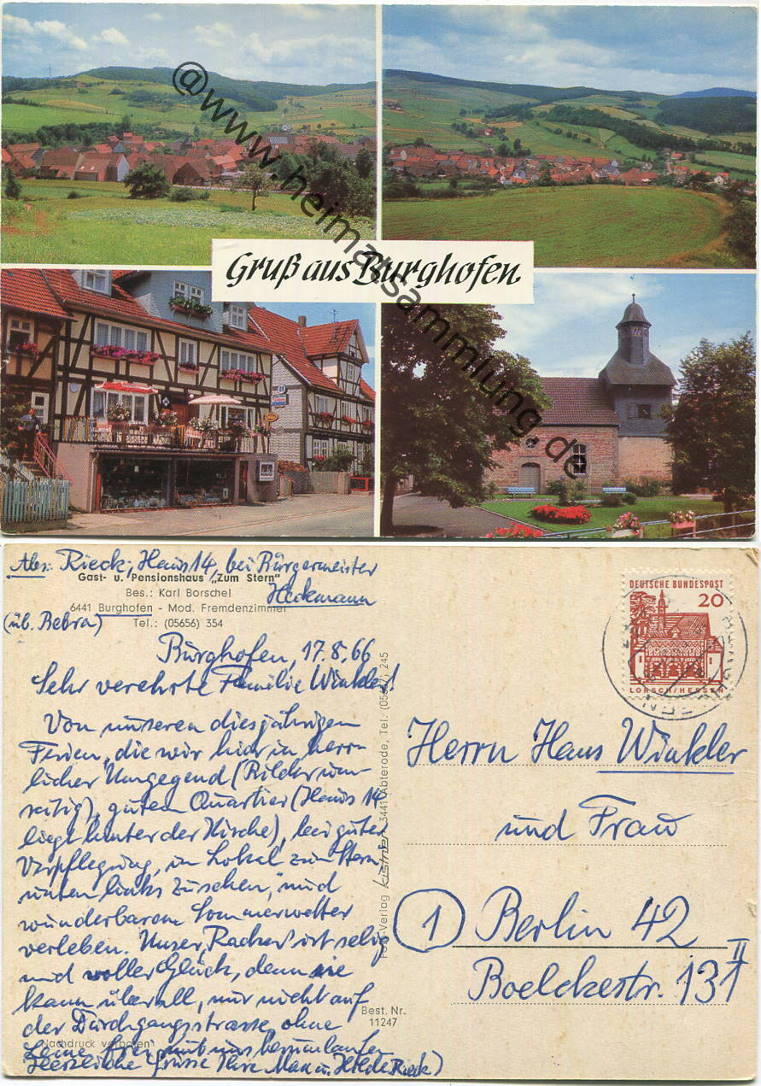 Gruß aus Burghofen
@www.heimatsammlung.de
Abs: Rieck, Haus 14, bei Bürgermeister
Heckmann
Gast- u. Pensionshaus „Zum Stern"
Bes.: Karl Borschel
6441 Burghofen - Mod. Fremdenzimmer
(üb. Bebra)
Tel.: (05656) 354
Burghofen, 17.8.66
Sehr verehrte Familie Winkler!
Von unseren diesjährigen
Ferien, die wir hier in herr-
licher Umgegend (Bilder um-
seitig), guten Quartier (Haus 14
liegt hinter der Kirche), bei guter
Verpflegung, im Lokal zum Stern,
unten links zu sehen, und
wunderbarem Sommerwetter
verleben. Unser "Racker" ist selig
und voller Glück, denn sie
kann überall, nur nicht auf
der Durchgangsstrasse, ohne
Leine frei mit uns herumlaufen
Herzliche Grüsse Ihre Max u. Hilde Rieck)
Nachdruck verboten
Best. Nr.
11247
Foto-Verlag kistner 3441 Abterode, Tel. (05657) 245
DEUTSCHE BUNDESPOST
20
LORSCH/HESSEN
Herrn Hans Winkler
und Frau
1 Berlin 42
Boelckestr. 131 II